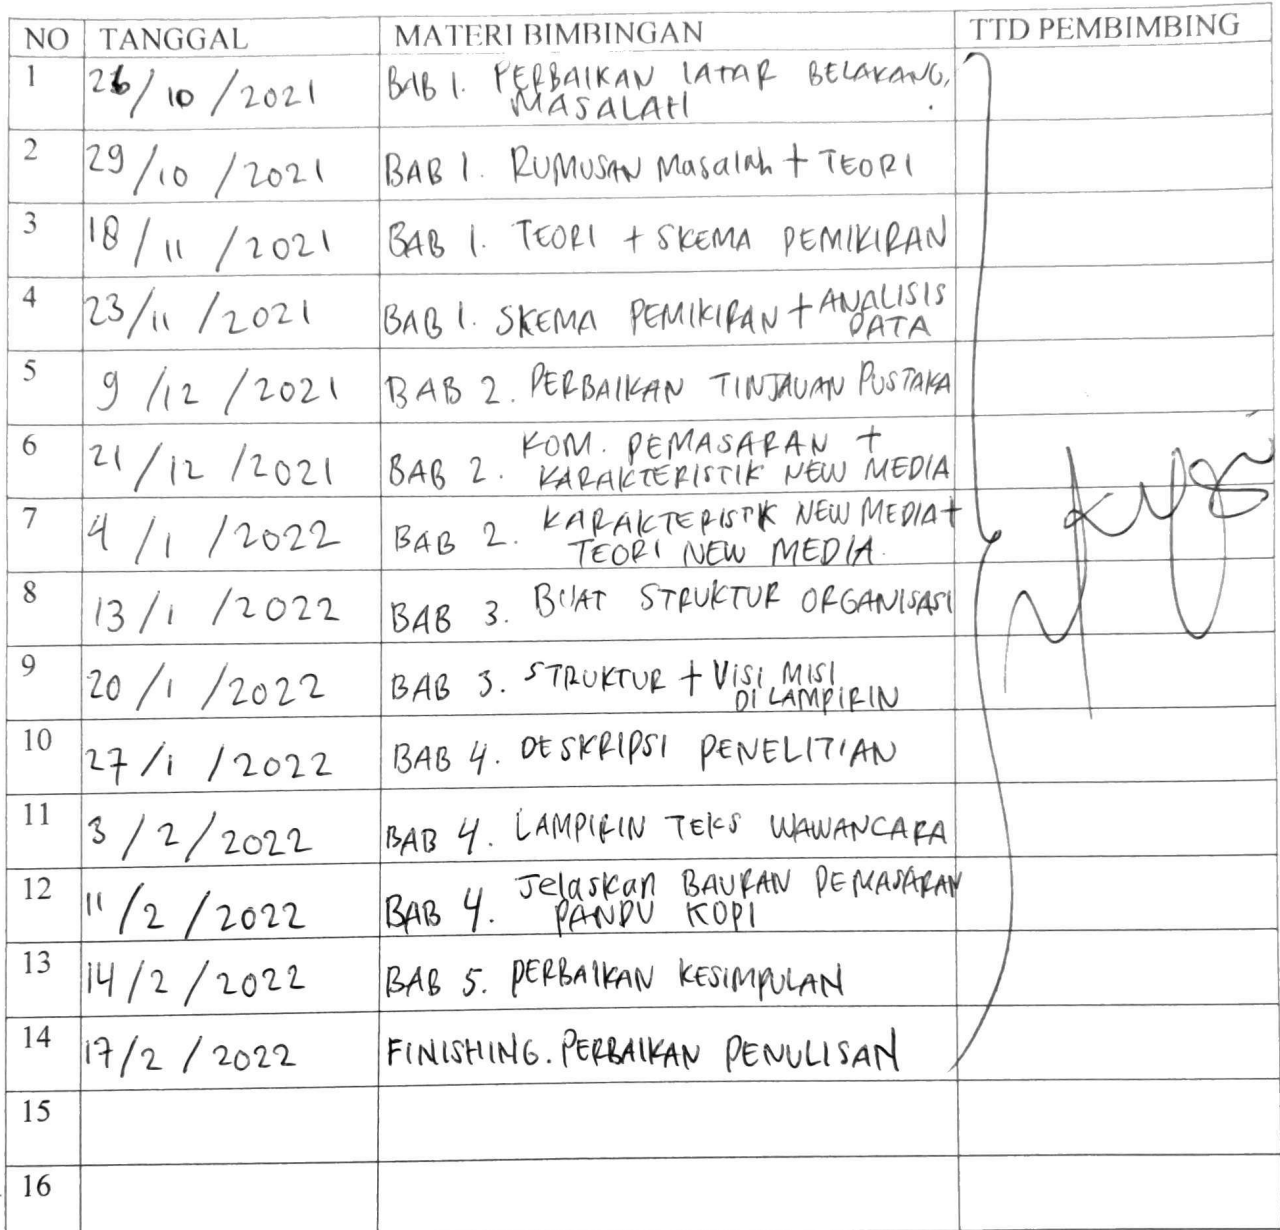 NO TANGGAL MATERI BIMBINGAN TTD PEMBIMBING
1 26/10/2021 BAB 1. PERBAIKAN LATAR BELAKANG,
MASALAH
2 29/10/2021 BAB 1. RUMUSAN Masalah + TEORI
3 18/11/2021 BAB 1. TEORI + SKEMA PEMIKIRAN
4 23/11/2021 BAB 1. SKEMA PEMIKIRAN + ANALISIS
DATA
5 9/12/2021 BAB 2. PERBAIKAN TINJAUAN PUSTAKA
6 21/12/2021 BAB 2. KOM. PEMASARAN +
KARAKTERISTIK NEW MEDIA
7 4/1/2022 BAB 2. KARAKTERISTK NEW MEDIA +
TEORI NEW MEDIA.
8 13/1/2022 BAB 3. BUAT STRUKTUR ORGANISASI
9 20/1/2022 BAB 3. STRUKTUR + VISI MISI
DI LAMPIRIN
10 27/1/2022 BAB 4. DESKRIPSI PENELITIAN
11 3/2/2022 BAB 4. LAMPIRIN TEKS WAWANCARA
12 11/2/2022 BAB 4. Jelaskan BAURAN PEMASARAN
PANDU KOPI
13 14/2/2022 BAB 5. PERBAIKAN KESIMPULAN
14 17/2/2022 FINISHING. PERBAIKAN PENULISAN
15
16